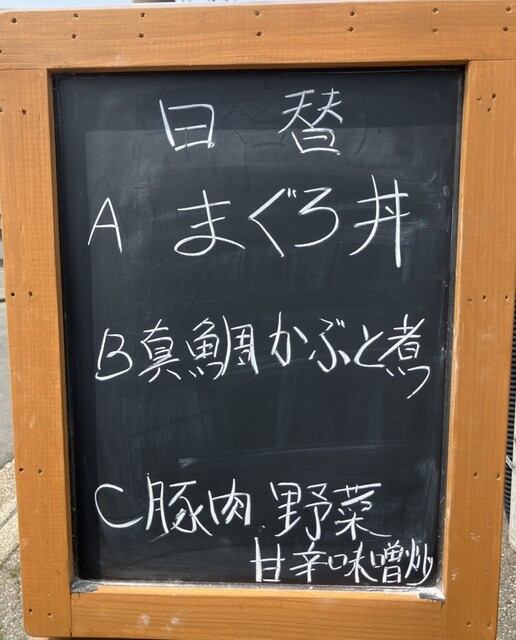 日替
A まぐろ丼
B 真鯛かぶと煮
C 豚肉.野菜
甘辛味噌炒